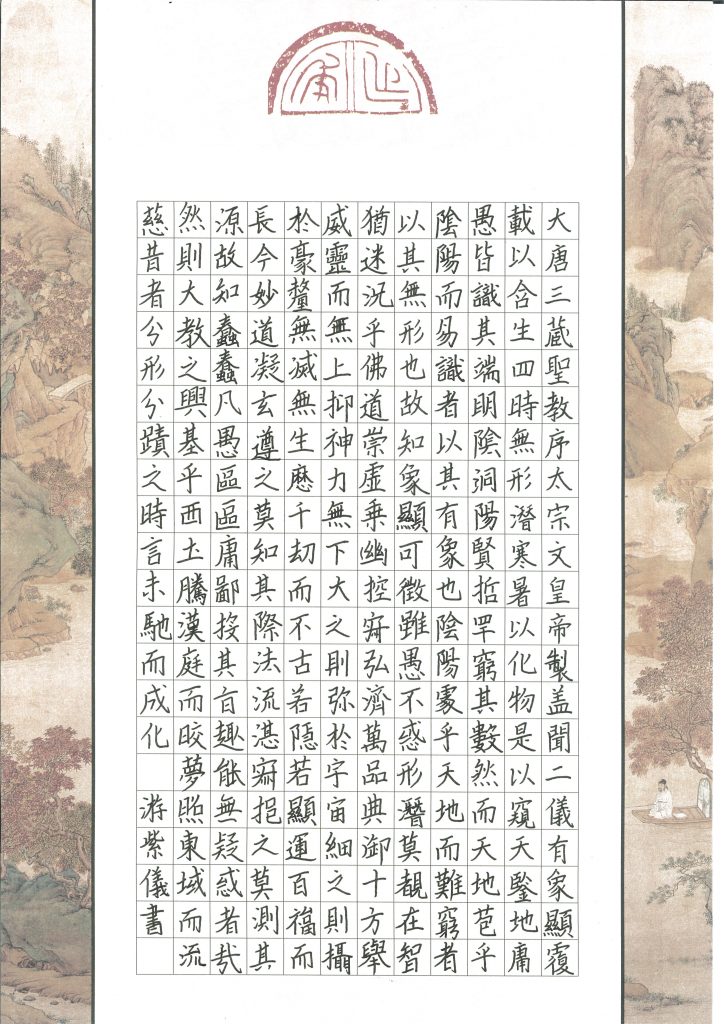 大唐三蔵聖教序太宗文皇帝製盖聞二儀有象顯覆
載以含生四時無形潛寒暑以化物是以窺天鑒地庸
愚皆識其端明陰洞陽賢哲罕窮其數然而天地苞乎
陰陽而易識者以其有象也陰陽處乎天地而難窮者
以其無形也故知象顯可徵雖愚不惑形潛莫覩在智
猶迷況乎佛道崇虛乗幽控寂弘濟萬品典御十方舉
威靈而無上抑神力無下大之則弥於宇宙細之則攝
於豪釐無滅無生歷千劫而不古若隱若顯運百福而
長今妙道凝玄遵之莫知其際法流湛寂挹之莫測其
源故知蠢蠢凡愚區區庸鄙投其旨趣能無疑惑者哉
然則大教之興基乎西土騰漢庭而皎夢照東域而流
慈昔者分形分蹟之時言未馳而成化 游紫儀書